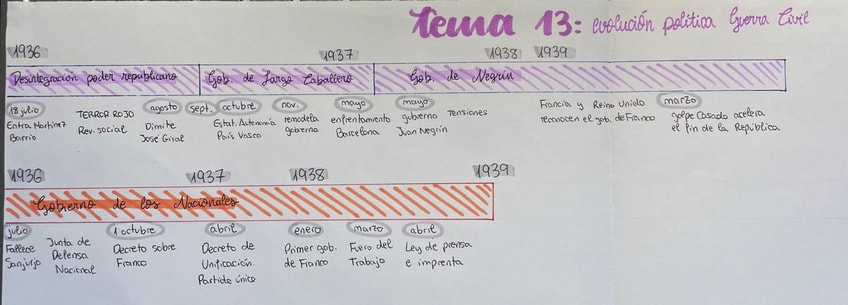 tema 13: evolución política Guerra Civil
1936 1937 1938 1939
Desintegración poder republicano Gob. de Largo Caballero Gob. de Negrín
18 julio
Entra Martínez
Barrio
TERROR ROJO
Rev. social
agosto
Dimite
José Giral
sept.
octubre
Estat. Autonomía
País Vasco
nov.
remodela
gobierno
mayo
enfrentamiento
Barcelona
mayo
gobierno
Juan Negrín
Tensiones
Francia y Reino Unido
reconocen el gob. de Franco
marzo
golpe Casado acelera
el fin de la República
1936 1937 1938 1939
Gobierno de los Nacionales
julio
Fallece
Sanjurjo
Junta de
Defensa
Nacional
1 octubre
Decreto sobre
Franco
abril
Decreto de
Unificación.
Partido único
enero
Primer gob.
de Franco
marzo
Fuero del
Trabajo
abril
Ley de prensa
e imprenta